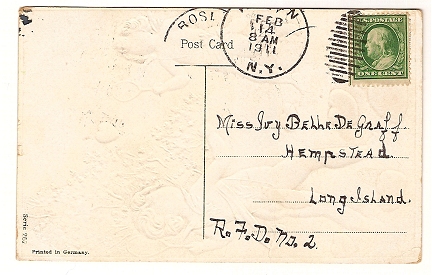 ROSL
FEB
14
8 AM
1911
N.Y.
U.S. POSTAGE
ONE CENT
Post Card
Miss Ivy Belle De Graff
Hempstead
Long Island.
R. F. D. No. 2.
Printed in Germany.
Serie